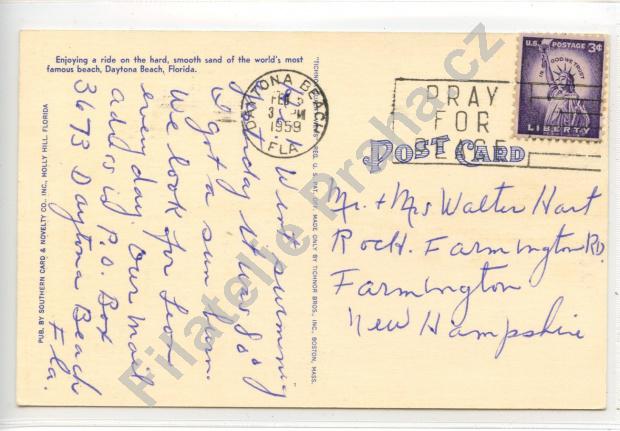 Enjoying a ride on the hard, smooth sand of the world's most
famous beach, Daytona Beach, Florida.
PUB. BY SOUTHERN CARD & NOVELTY CO., INC., HOLLY HILL, FLORIDA
Went swimming
yesterday it was 80°
I got a sun burn.
We look for Leon
every day. Our mail
address is P.O. Box
3673 Daytona Beach
Fla.
MADE ONLY BY TICHNOR BROS., INC., BOSTON, MASS.
DAYTONA BEACH
FEB
PM
1959
FLA.
PRAY
FOR
PEACE
U.S. POSTAGE 3¢
IN GOD WE TRUST
LIBERTY
POST CARD
Mr. + Mrs Walter Hart
Roch. Farmington RD.
Farmington
New Hampshire
Filatelie Praha.cz